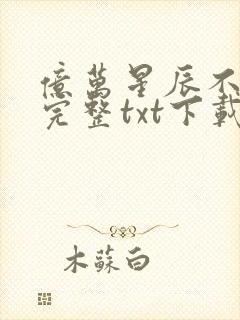 億萬星辰不
完整txt下載
木蘇白